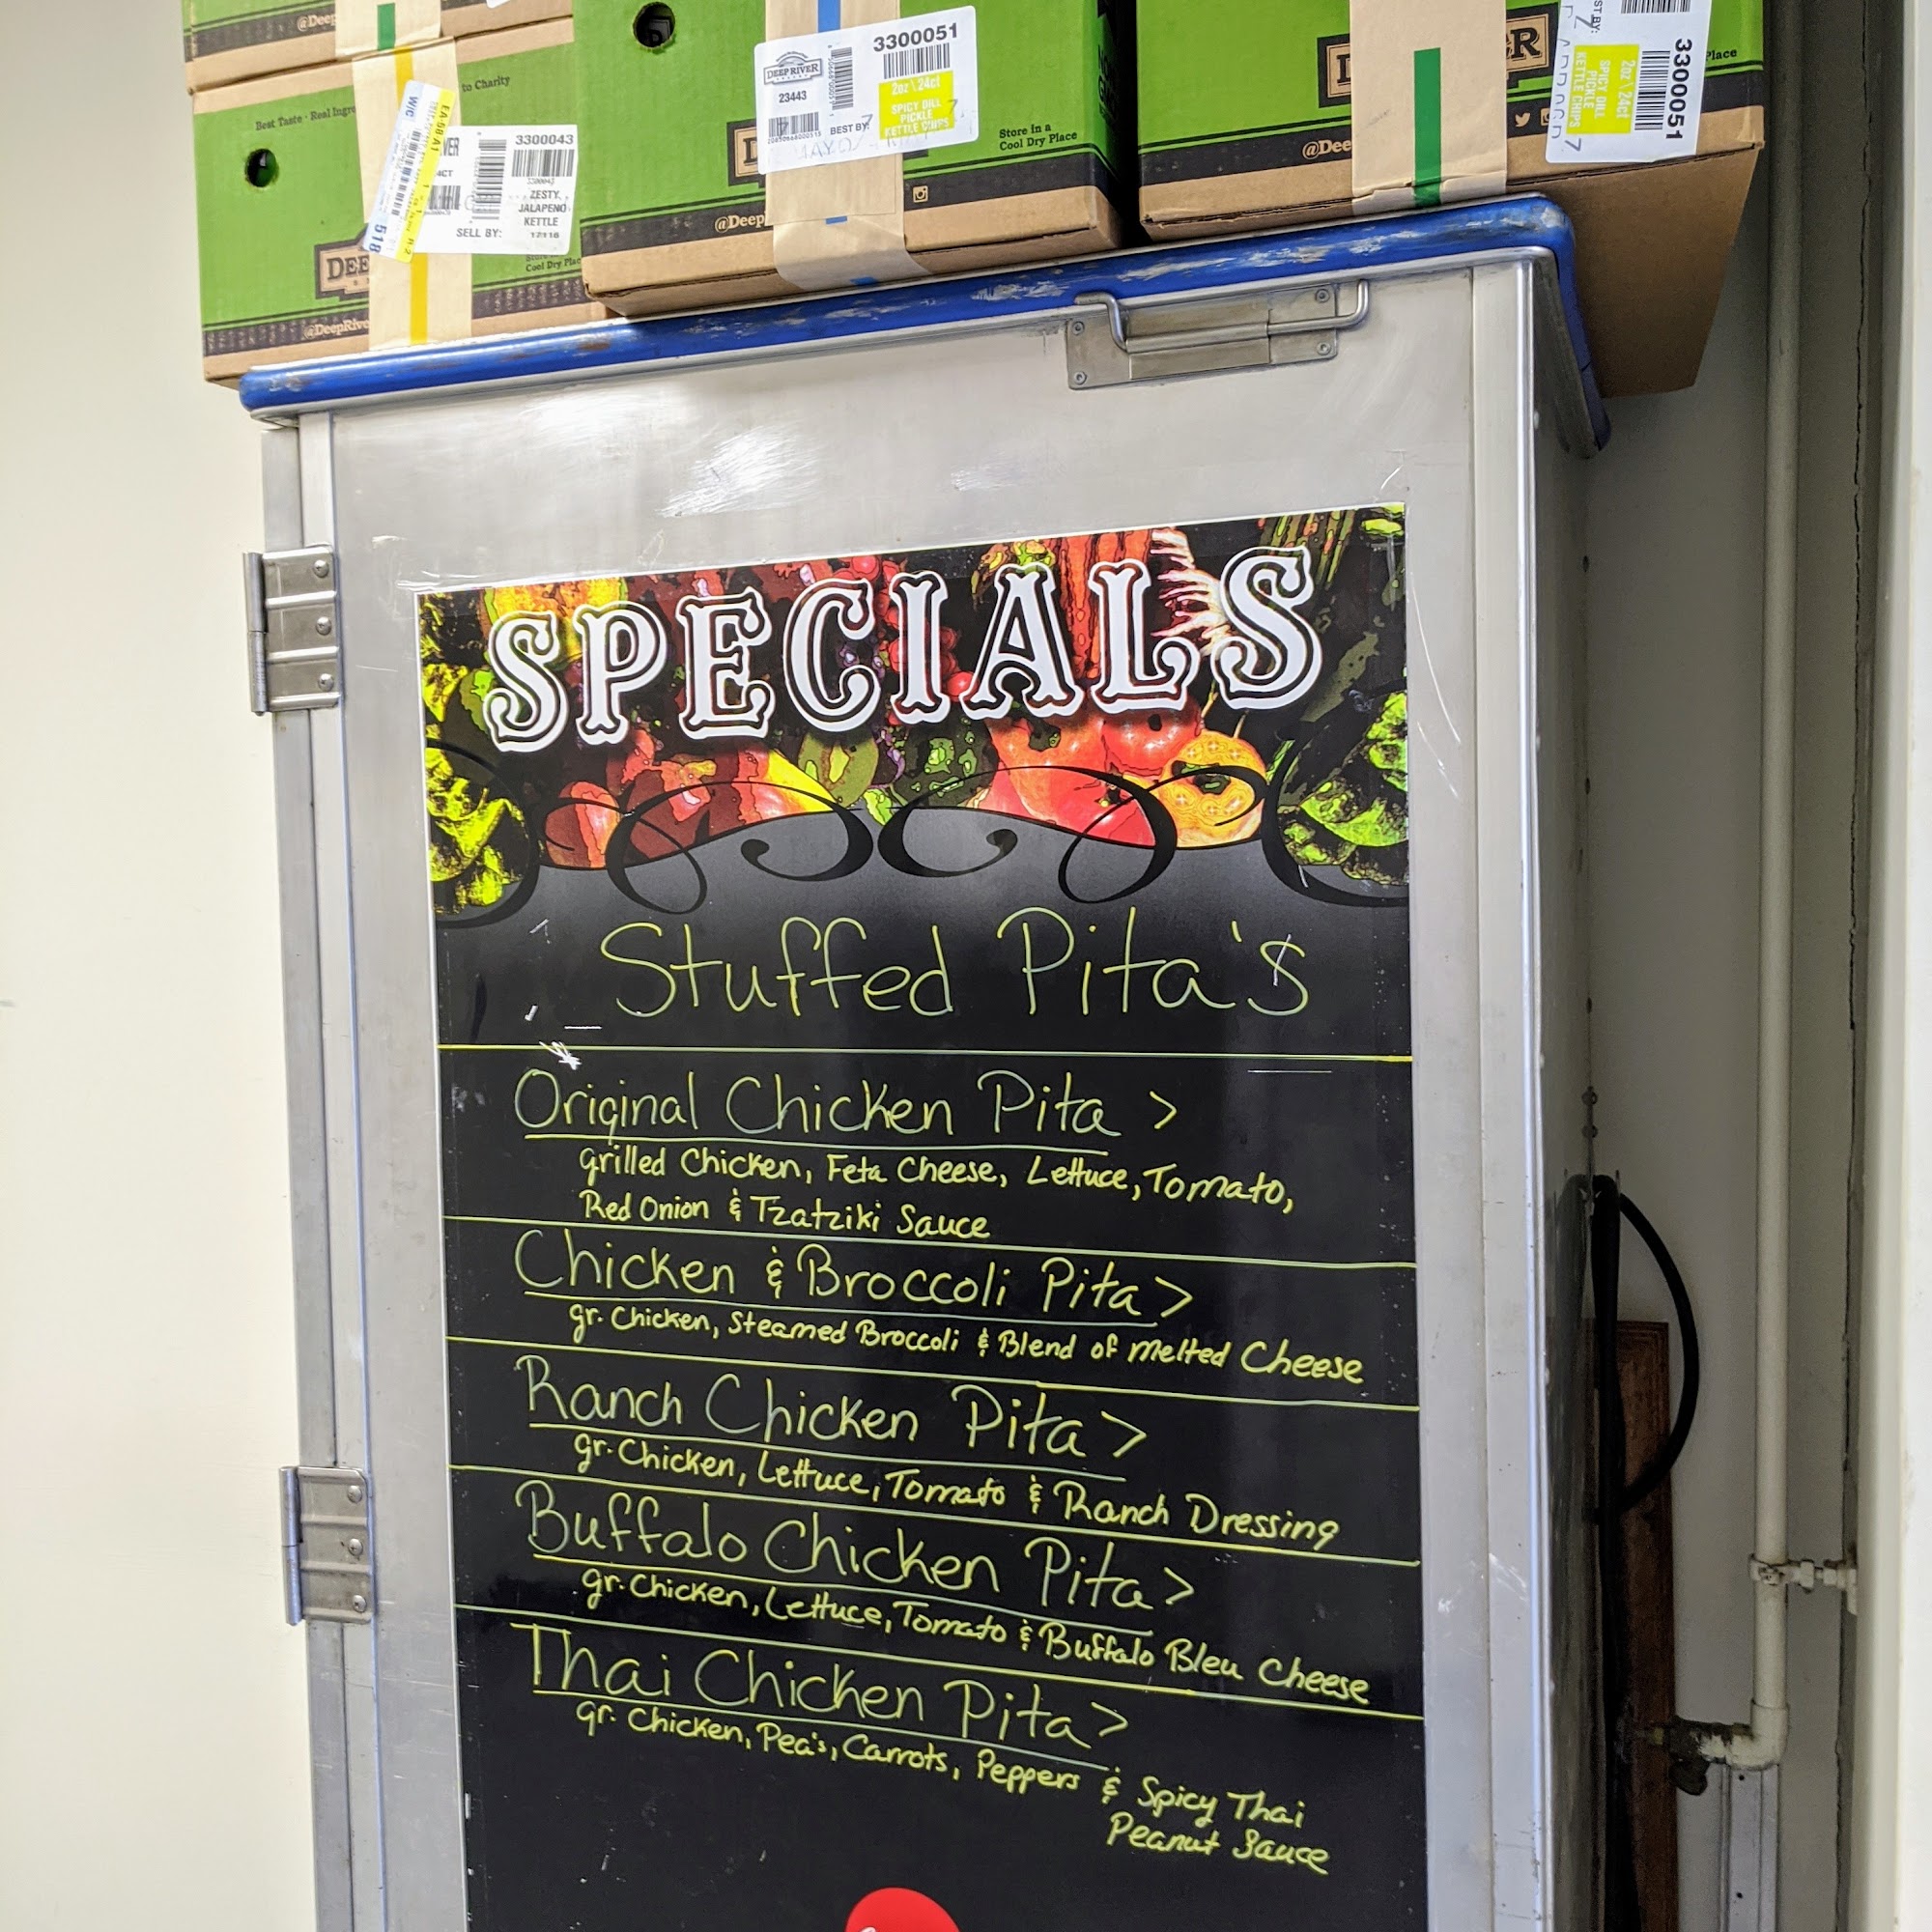 @Deep
Best Taste · Real Ingre
to Charity
3300043
ZESTY
JALAPENO
KETTLE
SELL BY: 17116
Cool Dry Plac
@DeepRive
DEEP RIVER
3300051
23443
2oz \ 24ct
SPICY DILL
PICKLE
KETTLE CHIPS
BEST BY:
Store in a
Cool Dry Place
@Deep
@Dee
3300051
2oz \ 24ct
SPICY DILL
PICKLE
KETTLE CHIPS
Place
SPECIALS
Stuffed Pita's
Original Chicken Pita >
grilled Chicken, Feta Cheese, Lettuce, Tomato,
Red Onion & Tzatziki Sauce
Chicken & Broccoli Pita >
gr. Chicken, Steamed Broccoli & Blend of Melted Cheese
Ranch Chicken Pita >
gr. Chicken, Lettuce, Tomato & Ranch Dressing
Buffalo Chicken Pita >
gr. Chicken, Lettuce, Tomato & Buffalo Bleu Cheese
Thai Chicken Pita >
gr. Chicken, Pea's, Carrots, Peppers & Spicy Thai
Peanut Sauce